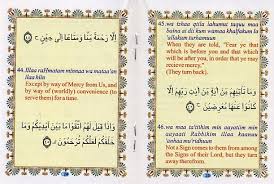 إِلَّا رَحْمَةً مِّنَّا وَمَتَاعًا إِلَىٰ حِينٍ
44. Illaa raḥmatam minnaa wa mataa'an
ilaa ḥiin
Except by way of Mercy from Us, and
by way of (worldly) convenience (to
serve them) for a time.
وَإِذَا قِيلَ لَهُمُ اتَّقُوا مَا بَيْنَ أَيْدِيكُمْ وَمَا
خَلْفَكُمْ لَعَلَّكُمْ تُرْحَمُونَ
45. wa izhaa qiila lahumut taquu maa
baina ai dii kum wamaa khalfakum la
'allakum turhamuun
When they are told, "Fear ye that
which is before you and that which
will be after you, in order that ye may
receive mercy,"
(They turn back).
وَمَا تَأْتِيهِم مِّنْ آيَةٍ مِّنْ آيَاتِ رَبِّهِمْ إِلَّا
كَانُوا عَنْهَا مُعْرِضِينَ
46. wa maa ta'tiihim min aayatim min
aayaati Rabbihim illaa kaanuu
'anhaa mu'riḍuun
Not a Sign comes to them from among
the Signs of their Lord, but they turn
away therefrom.